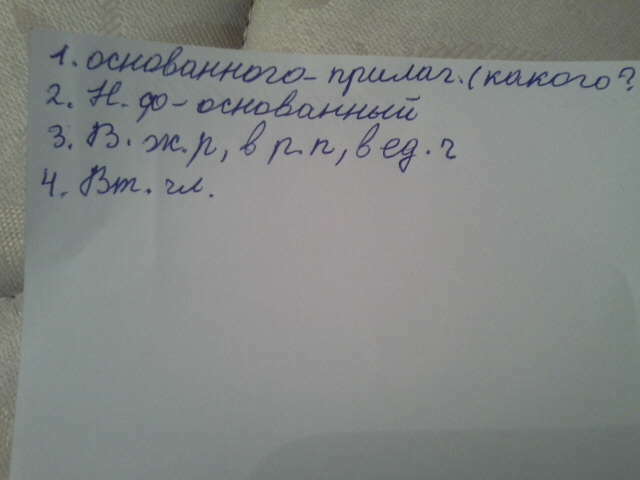 1. основанного - прилаг. (какого?
2. Н. ф - основанный
3. В. ж. р, в р. п, в ед. ч
4. Вт. чл.